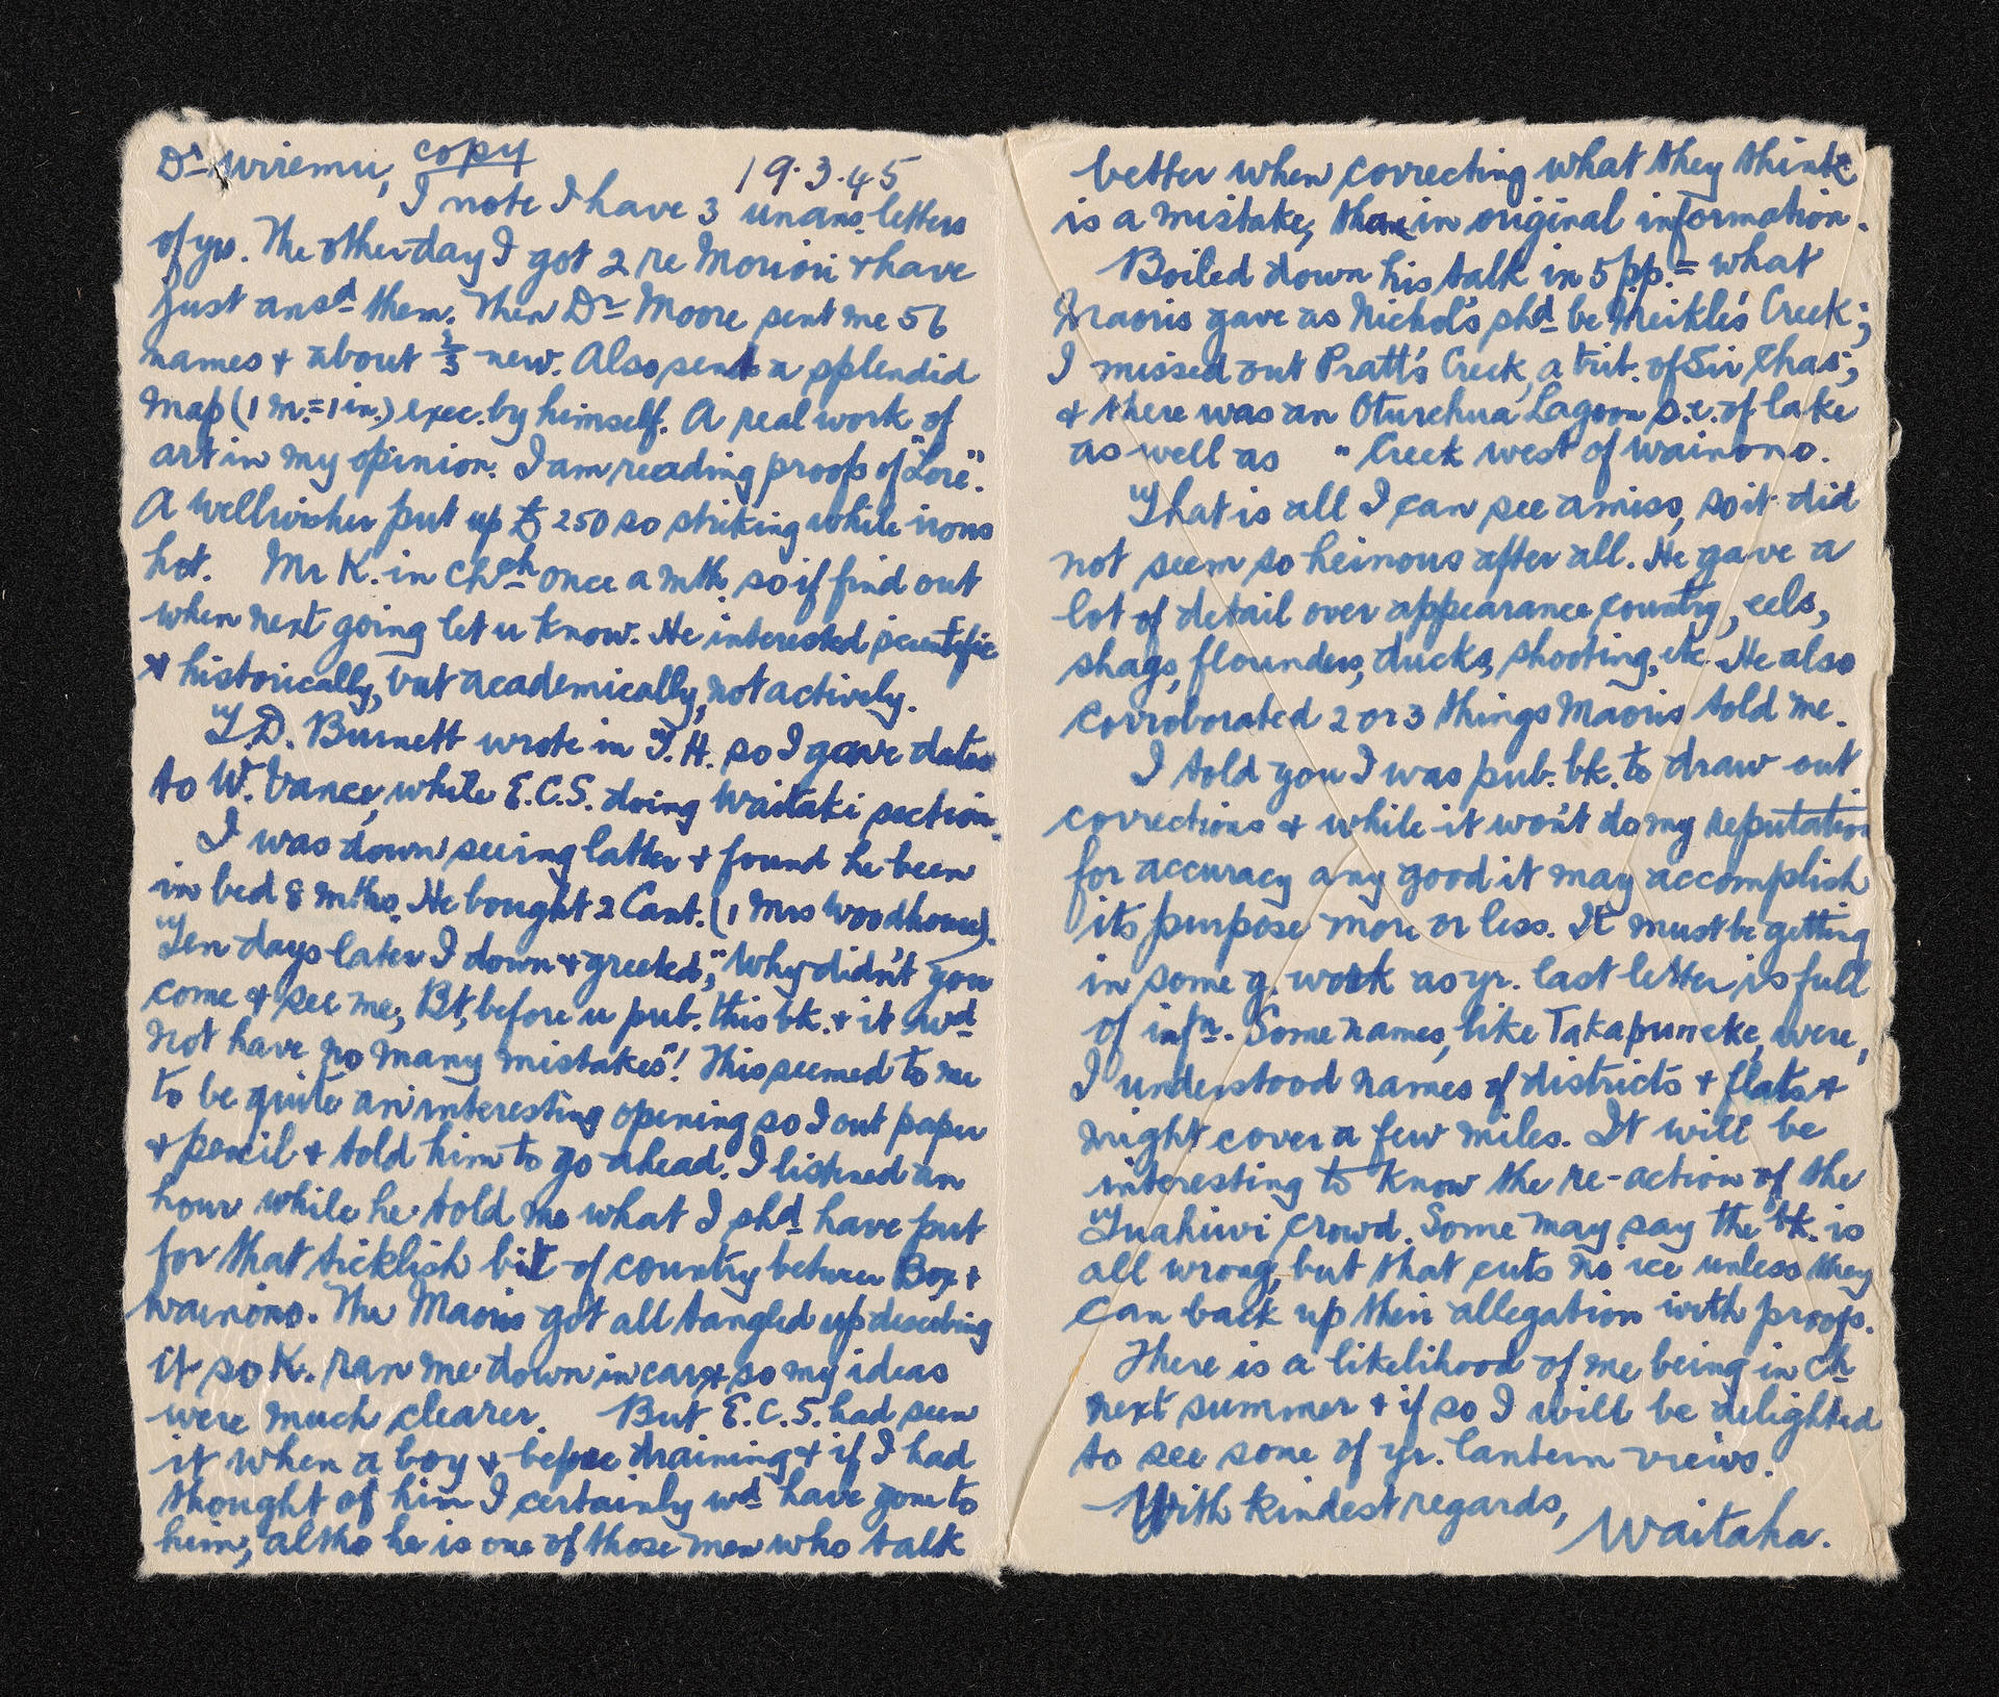 Dr Wiremu, copy 19.3.45
I note I have 3 unans. letters
of yrs. The other day I got 2 re Moriori & have
just ansd them. Then Dr Moore sent me 56
names & about 1/3 new. Also sent a splendid
map (1 m.=1 in.) exec. by himself. A real work of
art in my opinion. I am reading proofs of "Lore".
A wellwisher put up £250 so striking while irons
hot. Mr K. in Chch once a mth. so if find out
when next going let u know. He interested scientific
& historically, but academically, not actively.
T.D. Burnett wrote in T.H. so I gave dates
to W. Vance, while E.C.S. doing Waitaki section.
I was down seeing latter & found he been
in bed 8 mths. He bought 2 Cant. (1 Mrs Woodhouse).
Ten days later I down & greeted, "Why didn't you
come & see me, Bt, before u pub. this bk. & it wd
not have so many mistakes"! This seemed to me
to be quite an interesting opening so I out paper
& pencil & told him to go ahead. I listened an
hour while he told me what I shd have put
for that ticklish bit of country between Box &
Wainono. The Maoris got all tangled up describing
it so K. ran me down in car & so my ideas
were much clearer. But E.C.S. had seen
it when a boy & before draining & if I had
thought of him I certainly wd have gone to
him, altho he is one of those men who talk
better when correcting what they think
is a mistake, than in original information.
Boiled down his talk in 5 pp. = what
Maoris gave as Nichol's shd be Meikle's Creek;
I missed out Pratt's Creek, a trib. of Sir Chas;
& there was an Oturehua Lagoon s.e. of lake
as well as " Creek west of Wainono.
That is all I can see amiss, so it did
not seem so heinous after all. He gave a
lot of detail over appearance country, eels,
shags, flounders, ducks, shooting, etc. He also
corroborated 2 or 3 things Maoris told me.
I told you I was pub. bk. to draw out
corrections & while it won't do my reputation
for accuracy any good it may accomplish
its purpose more or less. It must be getting
in some g. work as yr. last letter is full
of infn. Some names, like Takapuneke, were,
I understood names of districts & flats &
might cover a few miles. It will be
interesting to know the re-action of the
Tuahiwi crowd. Some may say the bk. is
all wrong, but that cuts no ice unless they
can back up their allegation with proofs.
There is a likelihood of me being in Ch
next summer & if so I will be delighted
to see some of yr. lantern views.
With kindest regards,
Waitaha.